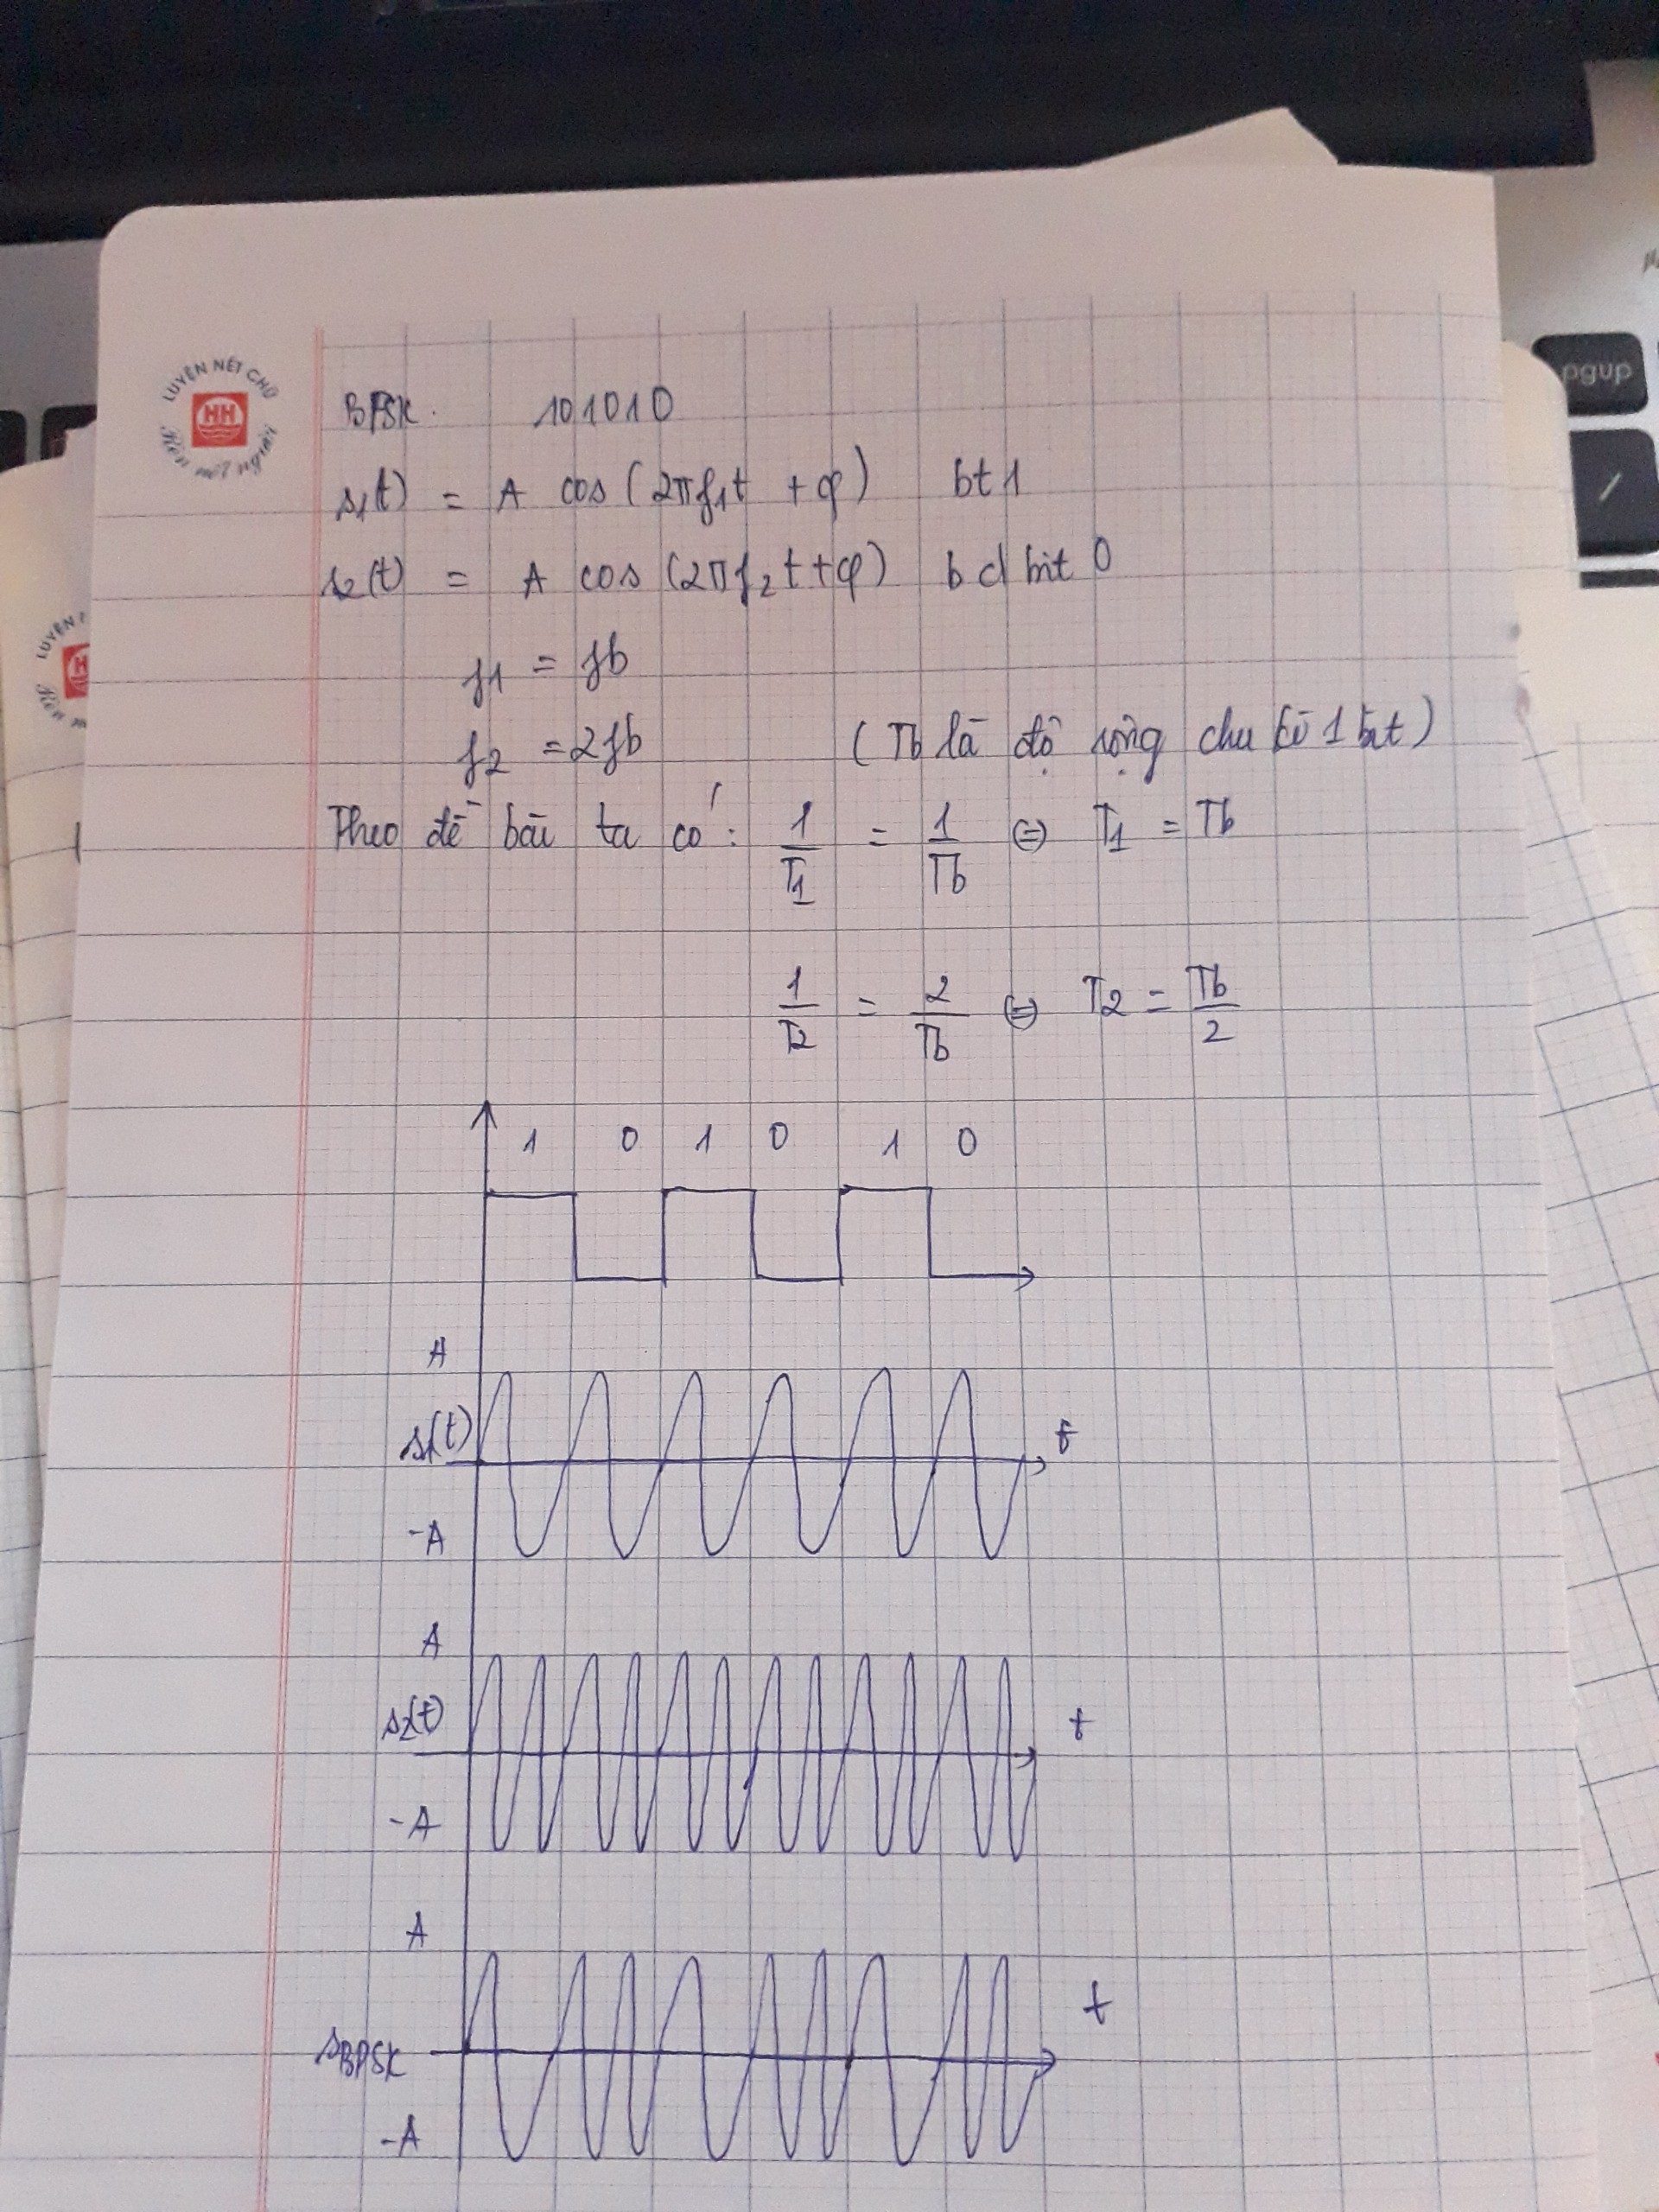 LUYỆN NÉT CHỮ
HH
Rèn nết người
BPSK. 101010
s1(t) = A cos(2πf1t + φ) bt 1
s2(t) = A cos(2πf2t+φ) bd bit 0
f1 = fb
f2 = 2fb (Tb là độ rộng chu kì 1 bit)
Theo đề bài ta có: 1/T1 = 1/Tb ⇔ T1 = Tb
1/T2 = 2/Tb ⇔ T2 = Tb/2
1 0 1 0 1 0
A
s1(t) t
-A
A
s2(t) t
-A
A
t
sBPSK
-A
pgup
/